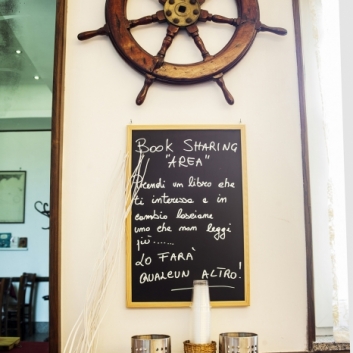 BOOK SHARING
"AREA"
Prendi un libro che
ti interessa e in
cambio lasciane
uno che non leggi
più......
LO FARÀ
QUALCUN ALTRO!